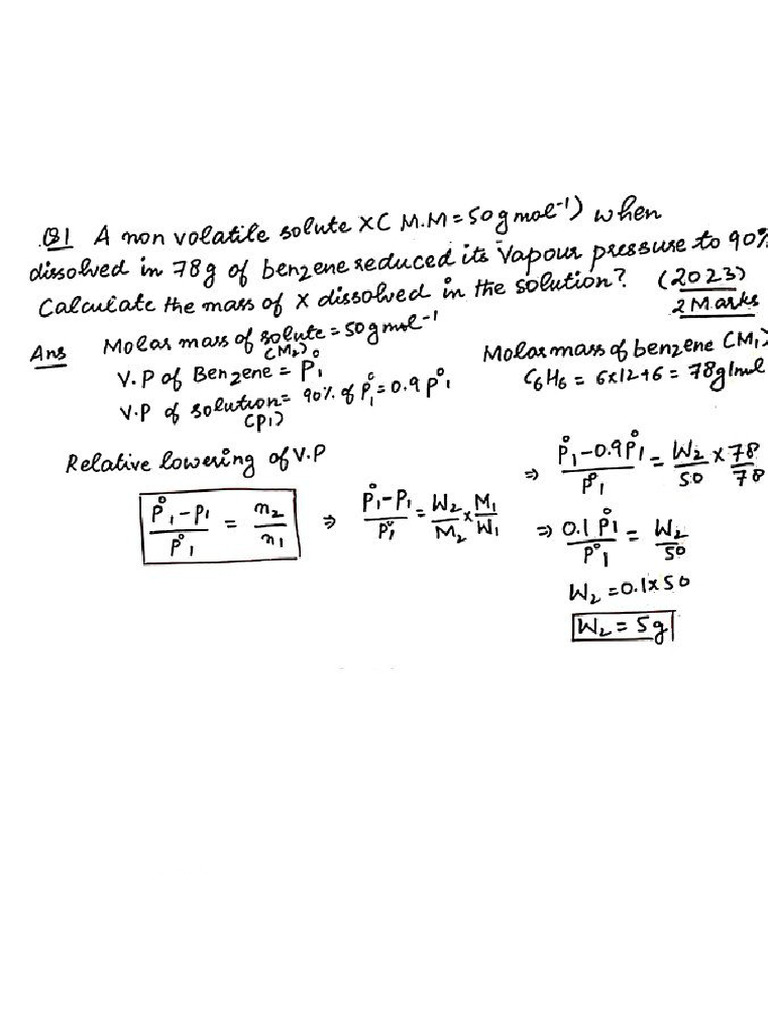 Q1 A non volatile solute X( M.M = 50 g mol⁻¹) when
dissolved in 78g of benzene reduced its vapour pressure to 90%
Calculate the mass of X dissolved in the solution? (2023)
2 Marks
Ans Molar mass of solute = 50 g mol⁻¹
(M₂)
V.P of Benzene = P°₁
V.P of solution = 90% of P°₁ = 0.9 P°₁
(P₁)
Molar mass of benzene (M₁)
C₆H₆ = 6×12+6 = 78g/mol
Relative lowering of V.P
(P°₁ - P₁)/P°₁ = n₂/n₁ ⇒ (P°₁ - P₁)/P°₁ = W₂/M₂ × M₁/W₁
⇒ (P°₁ - 0.9P°₁)/P°₁ = W₂/50 × 78/78
⇒ 0.1 P°₁/P°₁ = W₂/50
W₂ = 0.1×50
W₂ = 5g